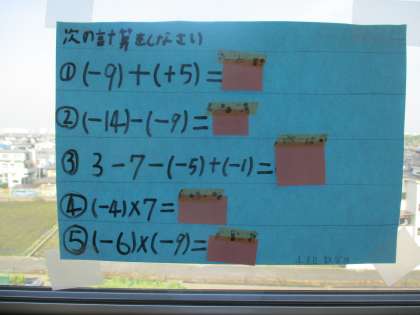 次の計算をしなさい
①(-9)+(+5)=
②(-14)-(-9)=
③ 3-7-(-5)+(-1)=
④(-4)×7=
⑤(-6)×(-9)=